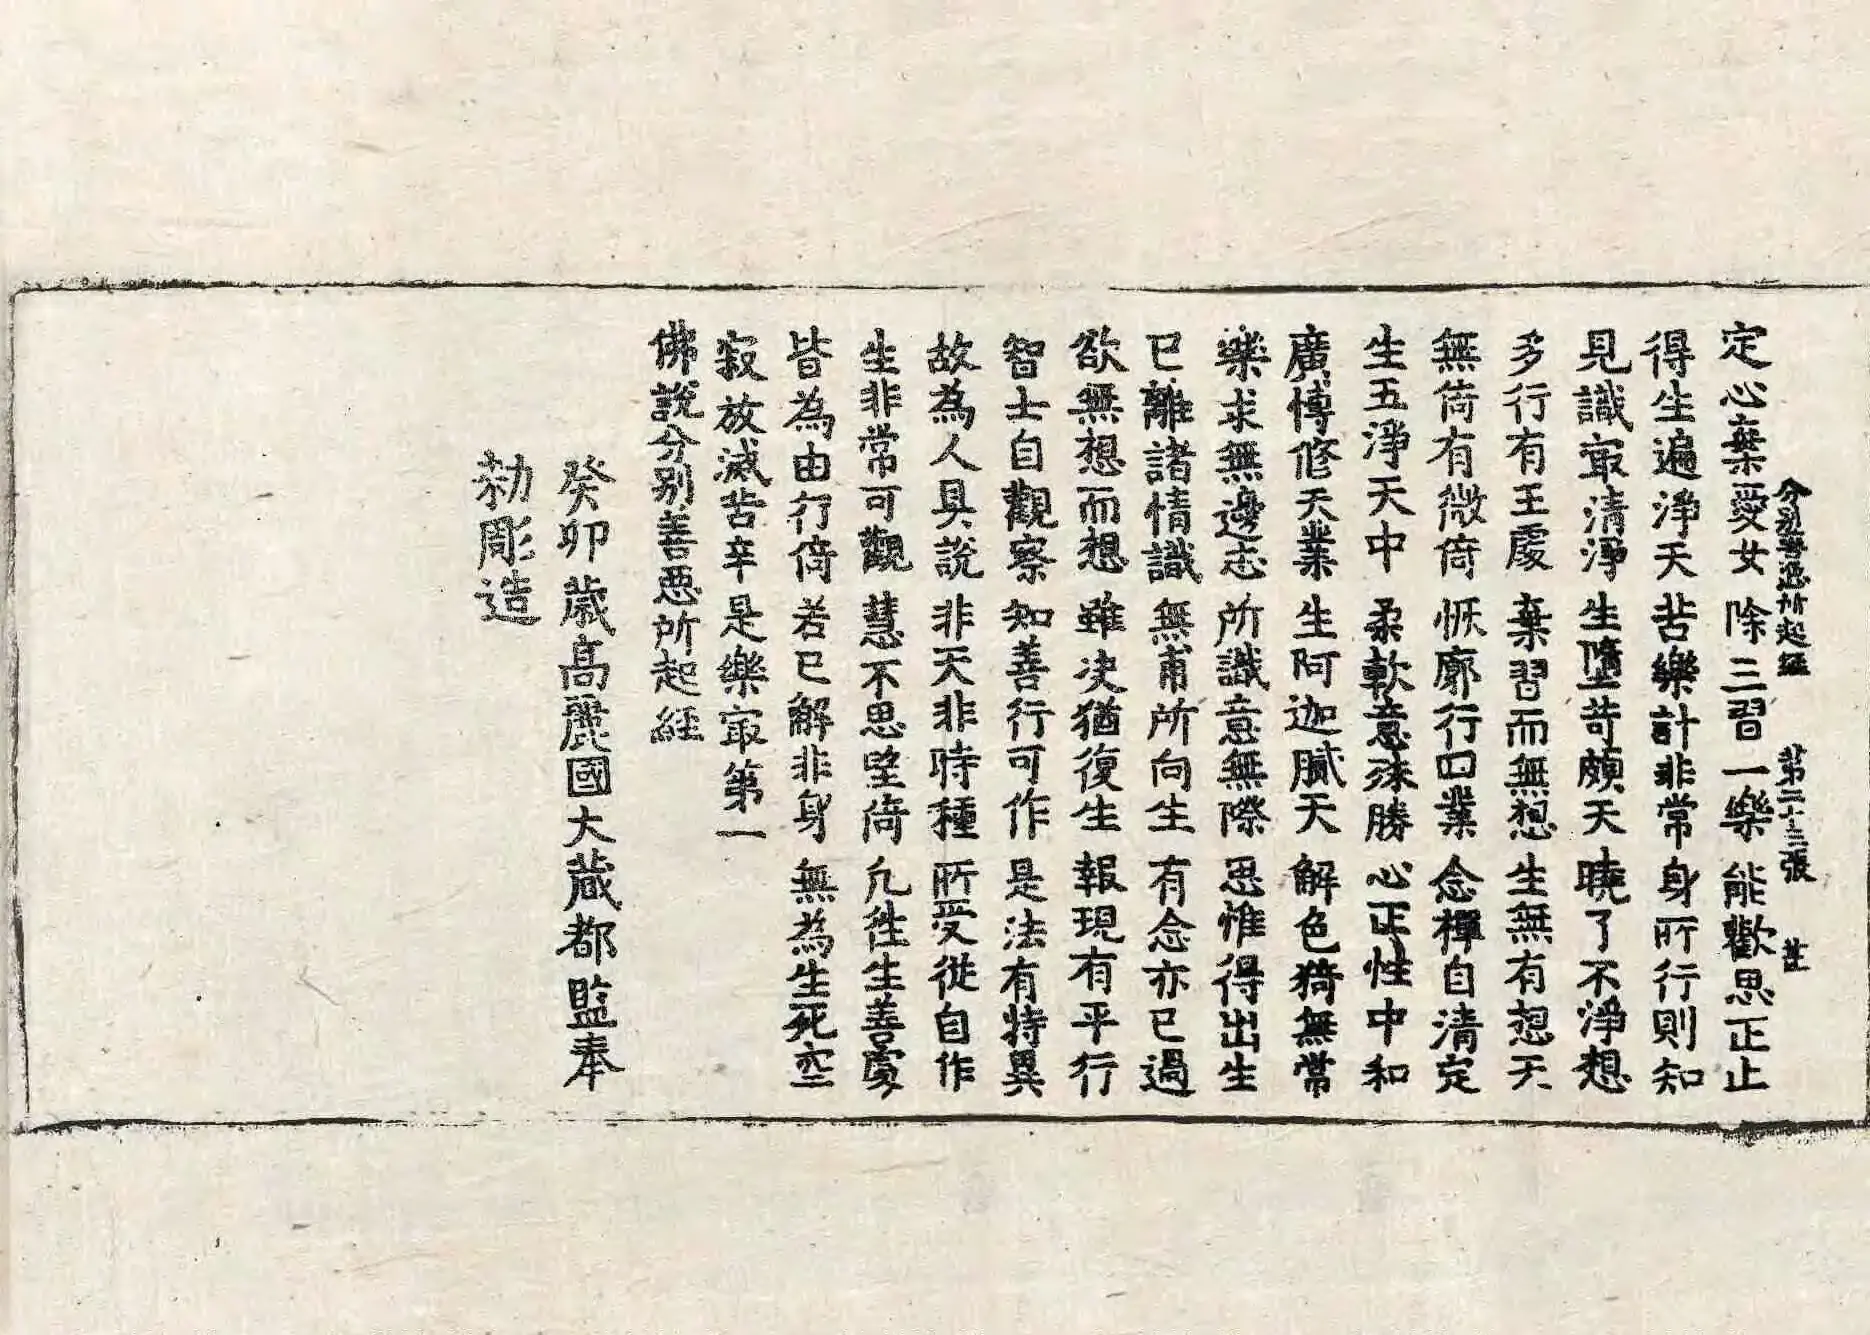 分別善惡所起經 第二十三張 茔
定心棄愛女 除三習一樂 能歡思正止
得生遍淨天 苦樂計非常 身所行則知
見識㝡清淨 生墮苛頗天 曉了不淨想
多行有王處 棄習而無想 生無有想天
無倚有微倚 恢廓行四業 念禪自清定
生五淨天中 柔軟意殊勝 心正性中和
廣博修天業 生阿迦膩天 解色猗無常
樂求無邊志 所識意無際 思惟得出生
已離諸情識 無甯所向生 有念亦已過
欲無想而想 雖決猶復生 報現有平行
智士自觀察 知善行可作 是法有特異
故為人具說 非天非時種 所受從自作
生非常可觀 慧不思堅倚 凡往生善處
皆為由行倚 若已解非身 無為生死空
寂放滅苦辛 是樂㝡第一
佛說分別善惡所起經
癸卯歲高麗國大藏都監奉
勑彫造